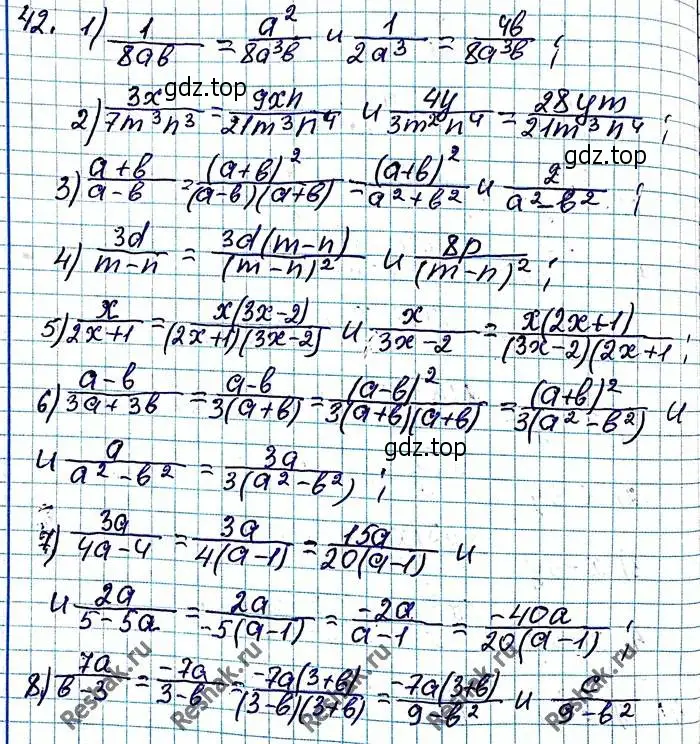 42. 1) 1/(8ab) = a²/(8a³b) и 1/(2a³) = 4b/(8a³b) ;
gdz.top
2) 3x/(7m³n³) = 9xn/(21m³n⁴) и 4y/(3m²n⁴) = 28ym/(21m³n⁴) ;
gdz.top
3) (a+b)/(a-b) = (a+b)²/((a-b)(a+b)) = (a+b)²/(a²+b²) и 2/(a²-b²) ;
4) 3d/(m-n) = 3d(m-n)/(m-n)² и 8p/(m-n)² ;
5) x/(2x+1) = x(3x-2)/((2x+1)(3x-2)) и x/(3x-2) = x(2x+1)/((3x-2)(2x+1 ;
6) (a-b)/(3a+3b) = (a-b)/(3(a+b)) = (a-b)²/(3(a+b)(a+b)) = (a+b)²/(3(a²-b²)) и
gdz.top
и a/(a²-b²) = 3a/(3(a²-b²)) ;
7) 3a/(4a-4) = 3a/(4(a-1)) = 15a/(20(a-1)) и
и 2a/(5-5a) = 2a/(-5(a-1)) = -2a/(a-1) = -40a/(20(a-1)) ;
8) 7a/(b-3) = -7a/(3-b) = -7a(3+b)/((3-b)(3+b)) = -7a(3+b)/(9-b²) и c/(9-b²) .
Reshak.ru
Reshak.ru
Reshak.ru